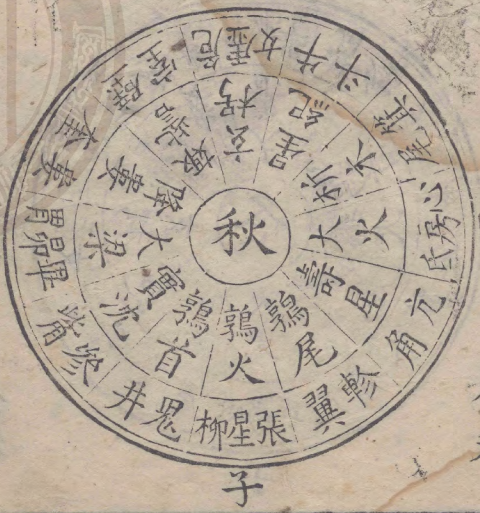 秋
鶉火
鶉尾
壽星
大火
析木
星紀
玄枵
娵訾
降婁
大梁
實沈
鶉首
柳星張
翼軫
角亢
氐房心
尾箕
斗牛
女虛危
室壁
奎婁
胃昴畢
觜參
井鬼
子